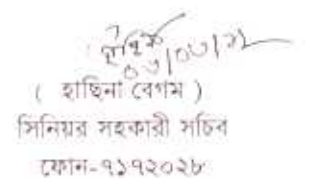 ০৬/০৬/২১
( হাছিনা বেগম )
সিনিয়র সহকারী সচিব
ফোন-৭১৭২০২৮